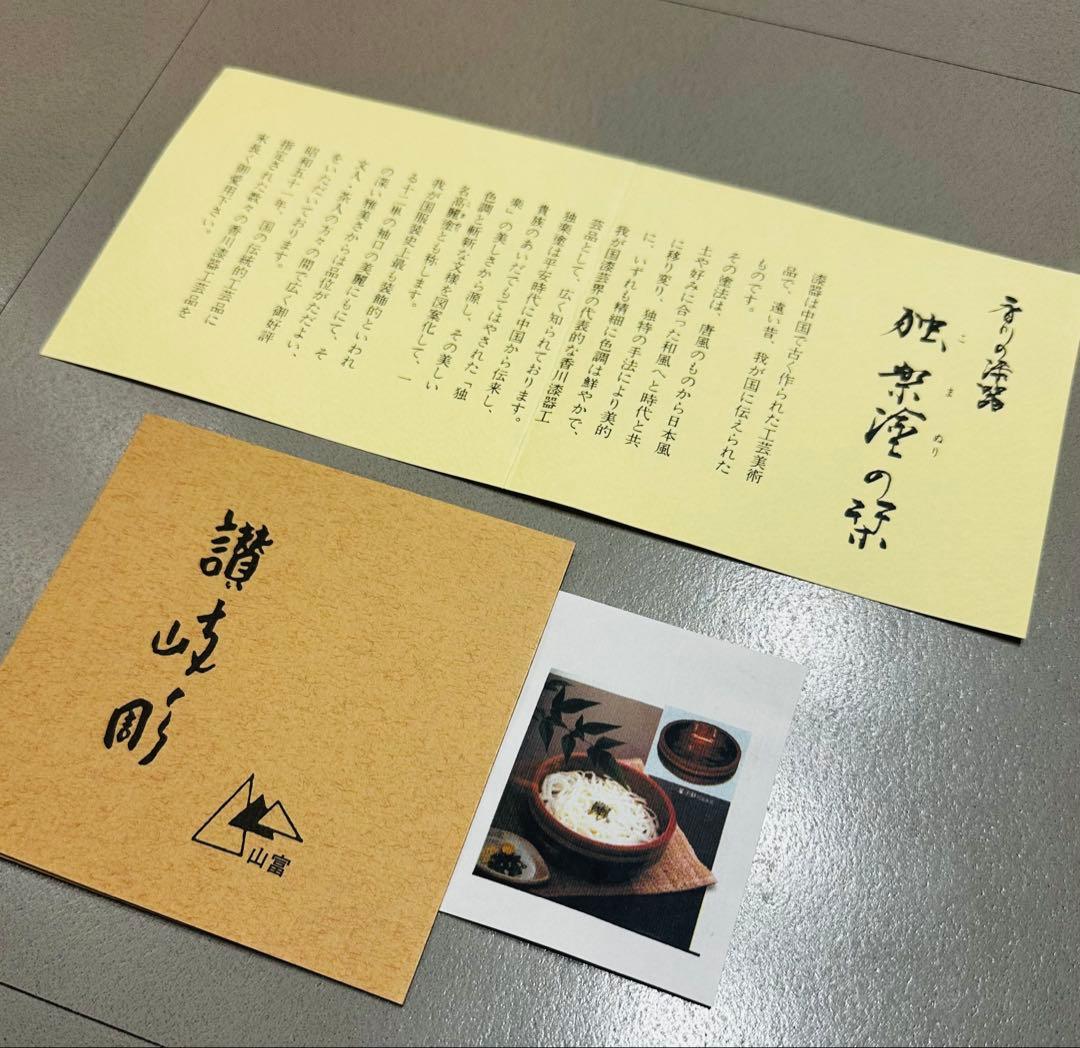 香川の漆器
独楽塗の栞
こまぬり
漆器は中国で古く作られた工芸美術
品で、遠い昔、我が国に伝えられた
ものです。
その塗法は、唐風のものから日本風
土や好みに合った和風へと時代と共
に移り変り、独特の手法により美的
に、いずれも精細に色調は鮮やかで、
我が国漆芸界の代表的な香川漆器工
芸品として、広く知られております。
独楽塗は平安時代に中国から伝来し、
貴族のあいだでもてはやされた「独
楽」の美しさから源し、その美しい
色調と斬新な文様を図案化して、一
名高麗塗とも称します。
我が国服装史上最も装飾的といわれ
る十二単の袖口の美麗にもにて、そ
の深い雅美さからは品位がただよい、
文人・茶人の方々の間で広く御好評
をいただいております。
昭和五十一年、国の伝統的工芸品に
指定された数々の香川漆器工芸品を
末長く御愛用下さい。
讃岐彫
山富